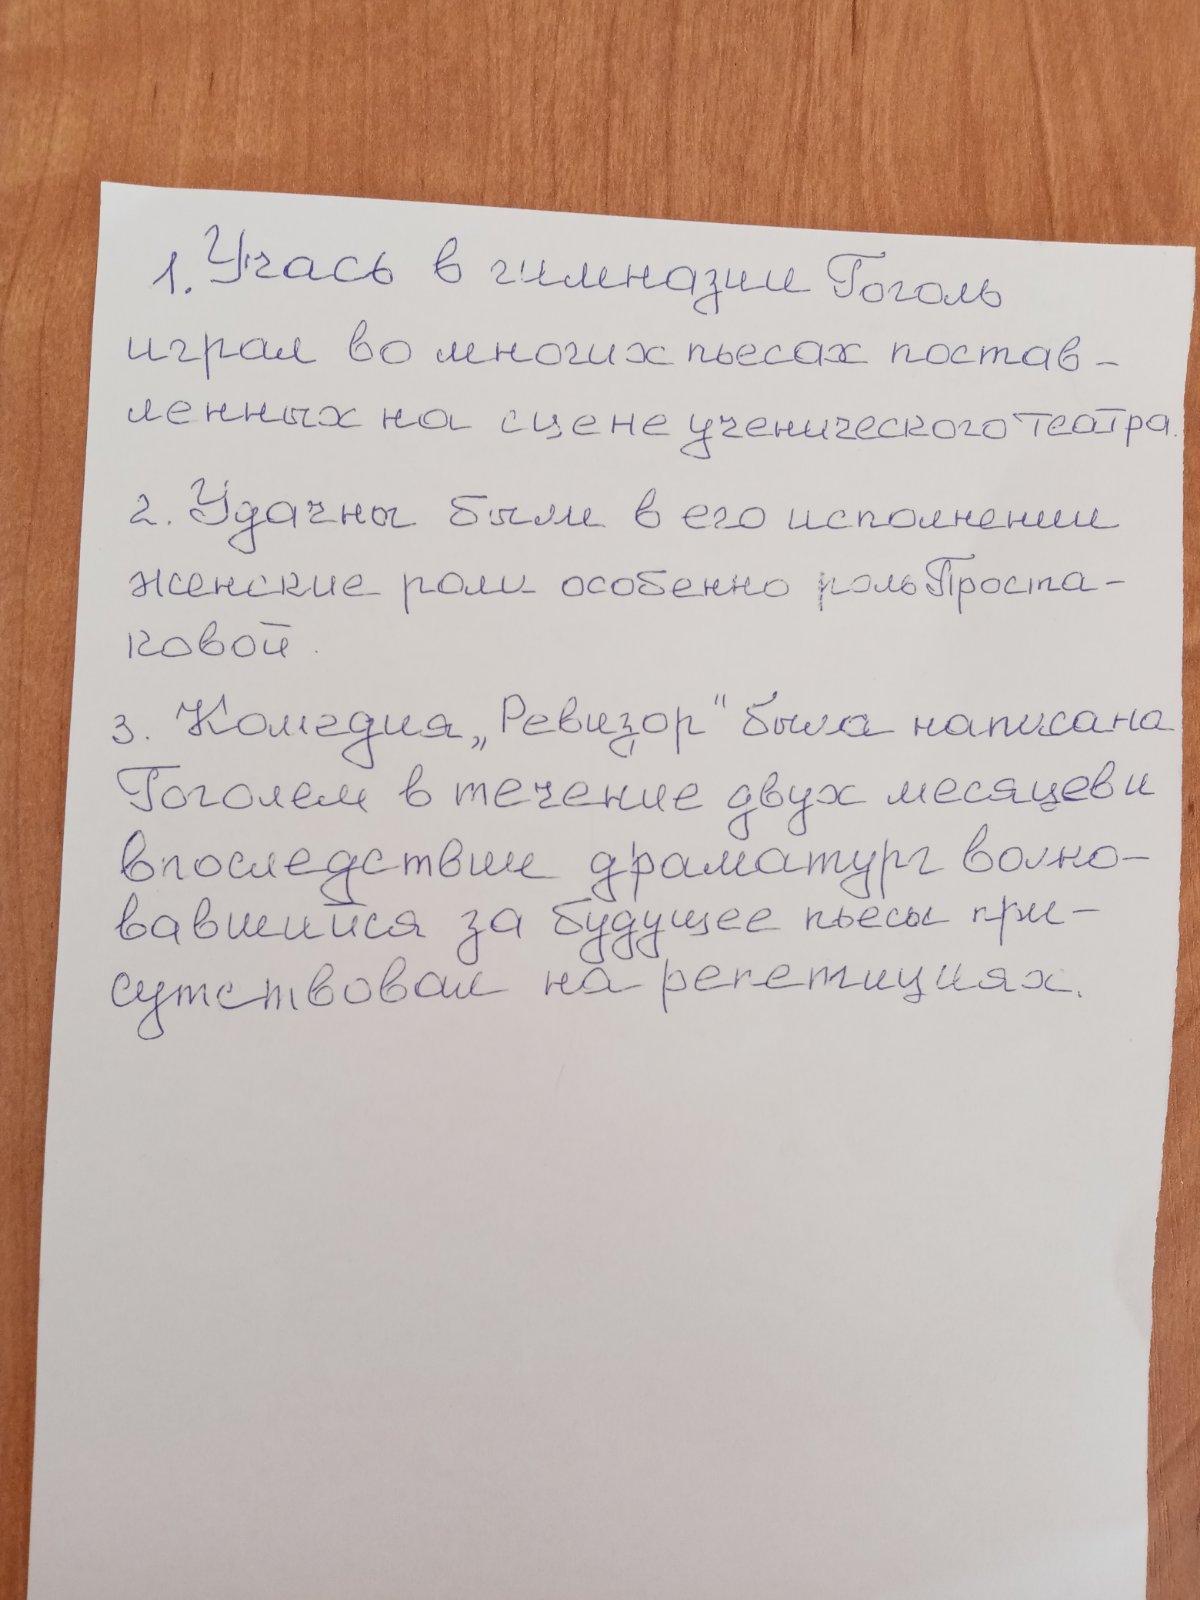 1. Учась в гимназии Гоголь
играл во многих пьесах постав-
ленных на сцене ученического театра.
2. Удачны были в его исполнении
женские роли особенно роль Проста-
ковой.
3. Комедия „Ревизор" была написана
Гоголем в течение двух месяцев и
впоследствие драматург волно-
вавшийся за будущее пьесы при-
сутствовал на репетициях.